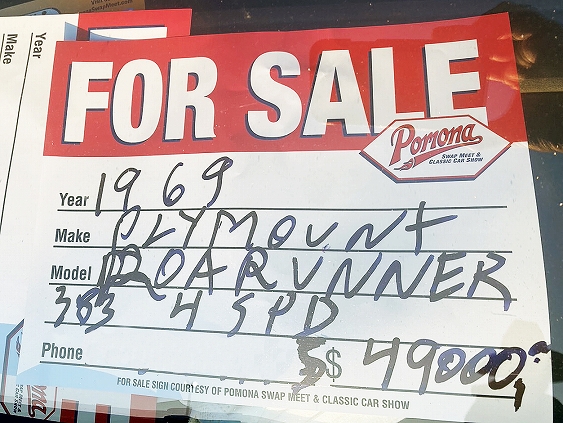 Make
Year
FOR SALE
Pomona
SWAP MEET &
CLASSIC CAR SHOW
Year 1969
Make PLYMOUNT
Model ROARUNNER
383 4 SPD
Phone $ $ 49000,00
FOR SALE SIGN COURTESY OF POMONA SWAP MEET & CLASSIC CAR SHOW